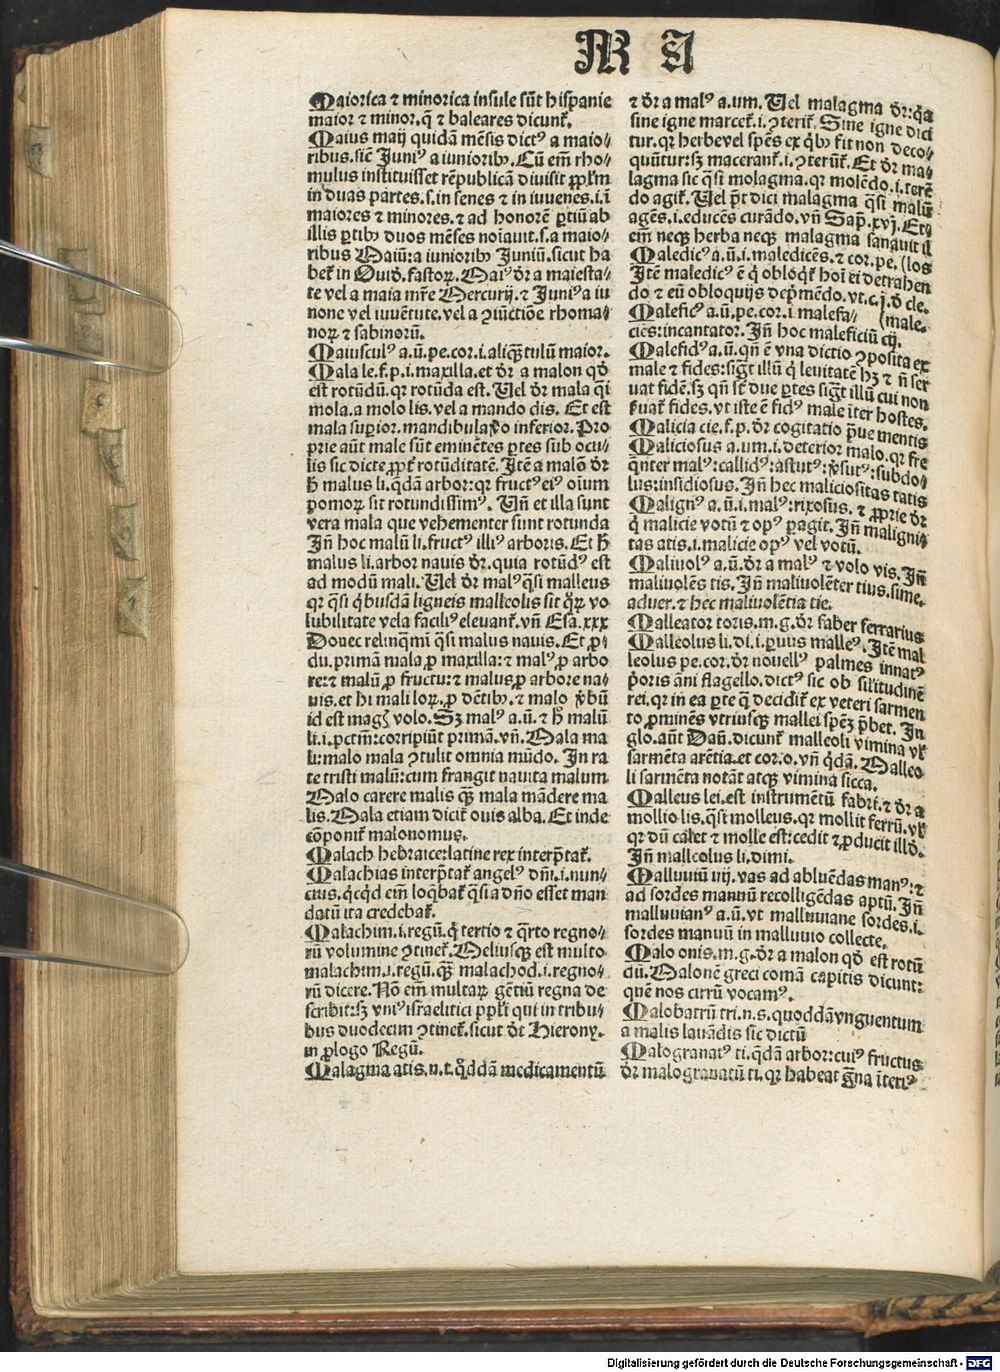 M A
Maiorica ⁊ minorica insule sūt hispanie
maior ⁊ minor. q̄ ⁊ baleares dicunt᷑.
Maius maij quidā mēsis dictꝰ a maio⸗
ribus. sic̄ Juniꝰ a iuniorib⁹. Cū em̄ rho⸗
mulus instituisset rēpublicā diuisit ꝓp̄l'm
in duas partes. s. in senes ⁊ in iuuenes. i. ī
maiores ⁊ minores. ⁊ ad honorē ꝑtiū ab
illis ꝑtib⁹ duos mēses noīauit. s. a maio⸗
ribus Maiū: a iuniorib⁹ Juniū. sicut ha
bet᷑ in Ouid̄. fastoꝝ. Maiꝰ dr̄ a maiesta⸗
te vel a maia mr̄e Mercurij. ⁊ Juniꝰ a iu
none vel iuuētute. vel a ꝯiūctiōe rhoma⸗
noꝝ ⁊ sabinorū.
Maiusculꝰ a. ū. pe. cor. i. aliq̄tulū maior.
Mala le. f. p. i. maxilla. et dr̄ a malon qd̄
est rotūdū. qꝛ rotūda est. Vel dr̄ mala q̄si
mola. a molo lis. vel a mando dis. Et est
mala suꝑior. mandibula v̄o inferior. Pro
prie aūt male sūt eminētes ꝑtes sub ocu⸗
lis sic dicte ꝓpt᷑ rotūditatē. Itē a malō dr̄
h̄ malus li. q̄dā arbor: qꝛ fructꝰ eiꝰ oīum
pomoꝝ sit rotundissimꝰ. Vn̄ et illa sunt
vera mala que vehementer sunt rotunda
In̄ hoc malū li. fructꝰ illiꝰ arboris. Et h̄
malus li. arbor nauis dr̄. quia rotūdꝰ est
ad modū mali. Vel dr̄ malꝰ q̄si malleus
qꝛ q̄si q̇busdā ligneis malleolis sit q̄ꝝ vo
lubilitate vela faciliꝰ eleuant᷑. vn̄ Esa. xxx
Donec relinq̄mī q̄si malus nauis. Et ꝓ⸗
du. primā mala ꝓ maxilla: ⁊ malꝰ ꝓ arbo
re: ⁊ malū ꝓ fructu: ⁊ malus ꝓ arbore na⸗
uis. et hi mali loꝝ. ꝓ dētib⁹. ⁊ malo v̄bū
id est magꝭ volo. Sꝫ malꝰ a. ū. ⁊ h̄ malū
li. i. pctm̄: corripiūt primā. vn̄. Mala ma
li: malo mala ꝯtulit omnia mūdo. In ra
te tristi malū: cum frangit nauita malum
Malo carere malis q̄ꝫ mala mādere ma
lis. Mala etiam dicit᷑ ouis alba. Et inde
cōponit᷑ malonomus.
Malach hebraice: latine rex interp̄tat᷑.
Malachias interp̄tat᷑ angelꝰ dn̄i. i. nun⸗
cius. q̇cq̇d em̄ loq̄bat᷑ q̄si a dn̄o esset man
datū ita credebat᷑.
Malachim. i. regū. q̇ tertio ⁊ q̄rto regno⸗
rū volumine ꝯtinet᷑. Meliusq̄ꝫ est multo
malachim. i. regū. q̄ꝫ malachod. i. regno⸗
rū dicere. Nō em̄ multaꝝ gētiū regna de
scribit: sꝫ vniꝰ israelitici ppl'i qui in tribu⸗
bus duodecim ꝯtinet᷑. sicut dt̄ Hierony.
in ꝓlogo Regū.
Malagma atis. n. t. q̇ddā medicamentū
⁊ dr̄ a malꝰ a. um. Vel malagma dr̄: q̄a
sine igne marcet᷑. i. ꝯterit᷑. Sine igne dici
tur. qꝛ herbe vel spēs ex q̇b⁹ fit non deco⸗
quūtur: sꝫ macerant᷑. i. ꝯterūt᷑. Et dr̄ ma⸗
lagma sic q̄si molagma. qꝛ molēdo. i. terē
do agit᷑. Vel p̄t dici malagma q̄si malū
agēs. i. educēs curādo. vn̄ Sap̄. xvj. Et⸗
em̄ neqꝫ herba neqꝫ malagma sanauit il
Maledicꝰ a. ū. i. maledicēs. ⁊ cor. pe. (los
Itē maledicꝰ ē q̇ obloq̇t᷑ hoī ei detrahen
do ⁊ eū obloquijs dep̄mēdo. vt. c. j. d̄ cle.
Maleficꝰ a. ū. pe. cor. i. malefa⸗ (male.
ciēs: incantator. In̄ hoc maleficiū cij.
Malefidꝰ a. ū. qn̄ ē vna dictio ꝯposita ex
male ⁊ fides: sigt᷑ illū q̇ leuitatē hꝫ ⁊ n̄ ser
uat fidē. sꝫ qn̄ st̄ due ꝑtes sigt᷑ illū cui non
suat᷑ fides. vt iste ē fidꝰ male īter hostes.
Malicia cie. f. p. dr̄ cogitatio p̄ue mentis
Maliciosus a. um. i. deterior malo. qꝛ fre
q̄nter malꝰ: callidꝰ: astutꝰ: v̄sutꝰ: subdo⸗
lus: insidiosus. In̄ hec maliciositas tatis
Malignꝰ a. ū. i. malꝰ: rixosus. ⁊ ꝓprie dr̄
q̇ malicie votū ⁊ opꝰ ꝑagit. In̄ maligni⸗
tas atis. i. malicie opꝰ vel votū.
Maliuolꝰ a. ū. dr̄ a malꝰ ⁊ volo vis. In̄
maliuolēs tis. In̄ maliuolēter tius. sime.
aduer. ⁊ hec maliuolētia tie.
Malleator toris. m. g. dr̄ faber ferrarius
Malleolus li. di. i. ꝑuus malleꝰ. Itē mal
leolus pe. cor. dr̄ nouellꝰ palmes innatꝰ
p̄oris āni flagello. dictꝰ sic ob sil'itudinē
rei. qꝛ in ea ꝑte q̄ decidit᷑ ex veteri sarmen
to ꝓminēs vtriusqꝫ mallei spēꝫ p̄bet. In
glo. aūt Dan̄. dicunt᷑ malleoli vimina vl'
sarmēta arētia. et cor. o. vn̄ q̄dā. Malleo
li sarmēta notāt atqꝫ vimina sicca.
Malleus lei. est instrumētū fabri. ⁊ dr̄ a
mollio lis. q̄si molleus. qꝛ mollit ferrū. vl'
qꝛ dū calet ⁊ molle est: cedit ⁊ ꝓducit illd̄.
In̄ malleolus li. dimi.
Malluuiū uij. vas ad abluēdas manꝰ: ⁊
ad sordes manuū recolligēdas aptū. In̄
malluuianꝰ a. ū. vt malluuiane sordes. i.
sordes manuū in malluuio collecte.
Malo onis. m. g. dr̄ a malon qd̄ est rotū
dū. Malonē greci comā capitis dicunt:
quē nos cirrū vocamꝰ.
Malobatrū tri. n. s. quoddā vnguentum
a malis lauādis sic dictū
Malogranatꝰ ti. q̄dā arbor: cuiꝰ fructus
dr̄ malogranatū ti. qꝛ habeat ḡna īteriꝰ
Digitalisierung gefördert durch die Deutsche Forschungsgemeinschaft - DFG